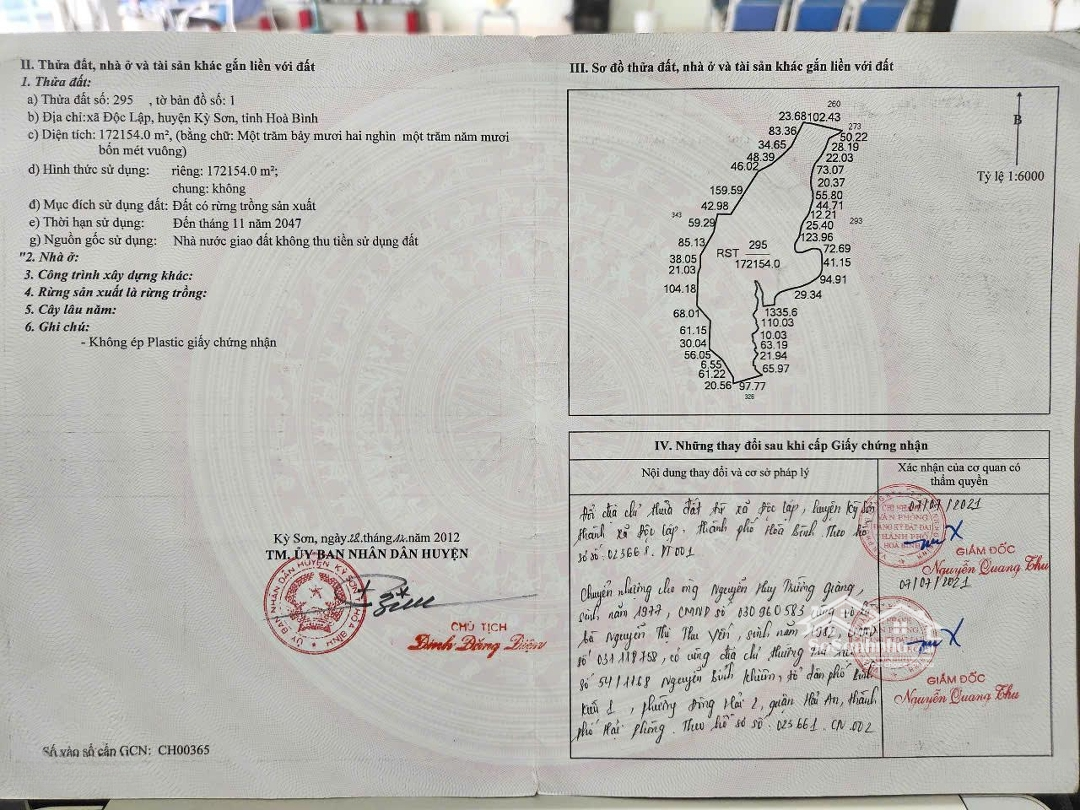 II. Thửa đất, nhà ở và tài sản khác gắn liền với đất
1. Thửa đất:
a) Thửa đất số: 295 , tờ bản đồ số: 1
b) Địa chỉ:xã Độc Lập, huyện Kỳ Sơn, tỉnh Hoà Bình
c) Diện tích: 172154.0 m², (bằng chữ: Một trăm bảy mươi hai nghìn một trăm năm mươi
bốn mét vuông)
d) Hình thức sử dụng: riêng: 172154.0 m²;
chung: không
đ) Mục đích sử dụng đất: Đất có rừng trồng sản xuất
e) Thời hạn sử dụng: Đến tháng 11 năm 2047
g) Nguồn gốc sử dụng: Nhà nước giao đất không thu tiền sử dụng đất
"2. Nhà ở:
3. Công trình xây dựng khác:
4. Rừng sản xuất là rừng trồng:
5. Cây lâu năm:
6. Ghi chú:
- Không ép Plastic giấy chứng nhận
Kỳ Sơn, ngày 28 tháng 12 năm 2012
TM. ỦY BAN NHÂN DÂN HUYỆN
ỦY BAN NHÂN DÂN HUYỆN KỲ SƠN T. HÒA BÌNH
CHỦ TỊCH
Đinh Đăng Điện
Số vào sổ cấp GCN: CH00365
III. Sơ đồ thửa đất, nhà ở và tài sản khác gắn liền với đất
260
23.68 102.43
273
83.36
50.22
34.65
28.19
48.39
22.03
46.02
73.07
20.37
159.59
55.80
42.98
44.71
343
12.21
59.29
25.40
293
123.96
85.13
72.69
38.05
41.15
21.03
94.91
104.18
29.34
RST 295
172154.0
68.01
1335.6
110.03
61.15
10.03
30.04
63.19
56.05
21.94
6.55
65.97
61.22
20.56
97.77
328
B
Tỷ lệ 1:6000
IV. Những thay đổi sau khi cấp Giấy chứng nhận
Nội dung thay đổi và cơ sở pháp lý
Xác nhận của cơ quan có
thẩm quyền
Đổi địa chỉ thửa đất từ xã Độc Lập, huyện Kỳ Sơn
thành xã Độc Lập, thành phố Hòa Bình Theo hồ
sơ số 023661. VT 001
07/07/2021
CHI NHÁNH
VĂN PHÒNG
ĐĂNG KÝ ĐẤT ĐAI
THÀNH PHỐ
HOÀ BÌNH
GIÁM ĐỐC
Nguyễn Quang Thu
Chuyển nhượng cho ông Nguyễn Huy Trường Giang,
sinh năm 1977, CMND số: 030960583 cùng vợ là
bà Nguyễn Thị Thu Yến, sinh năm
số 031118758, có cùng địa chỉ thường trú
số 54/1168 Nguyễn Bỉnh Khiêm, tổ dân phố Bình
Kiều 1, phường Đông Hải 2, quận Hải An, thành
phố Hải Phòng. Theo hồ sơ số: 023661. CN.002
07/07/2021
GIÁM ĐỐC
Nguyễn Quang Thu